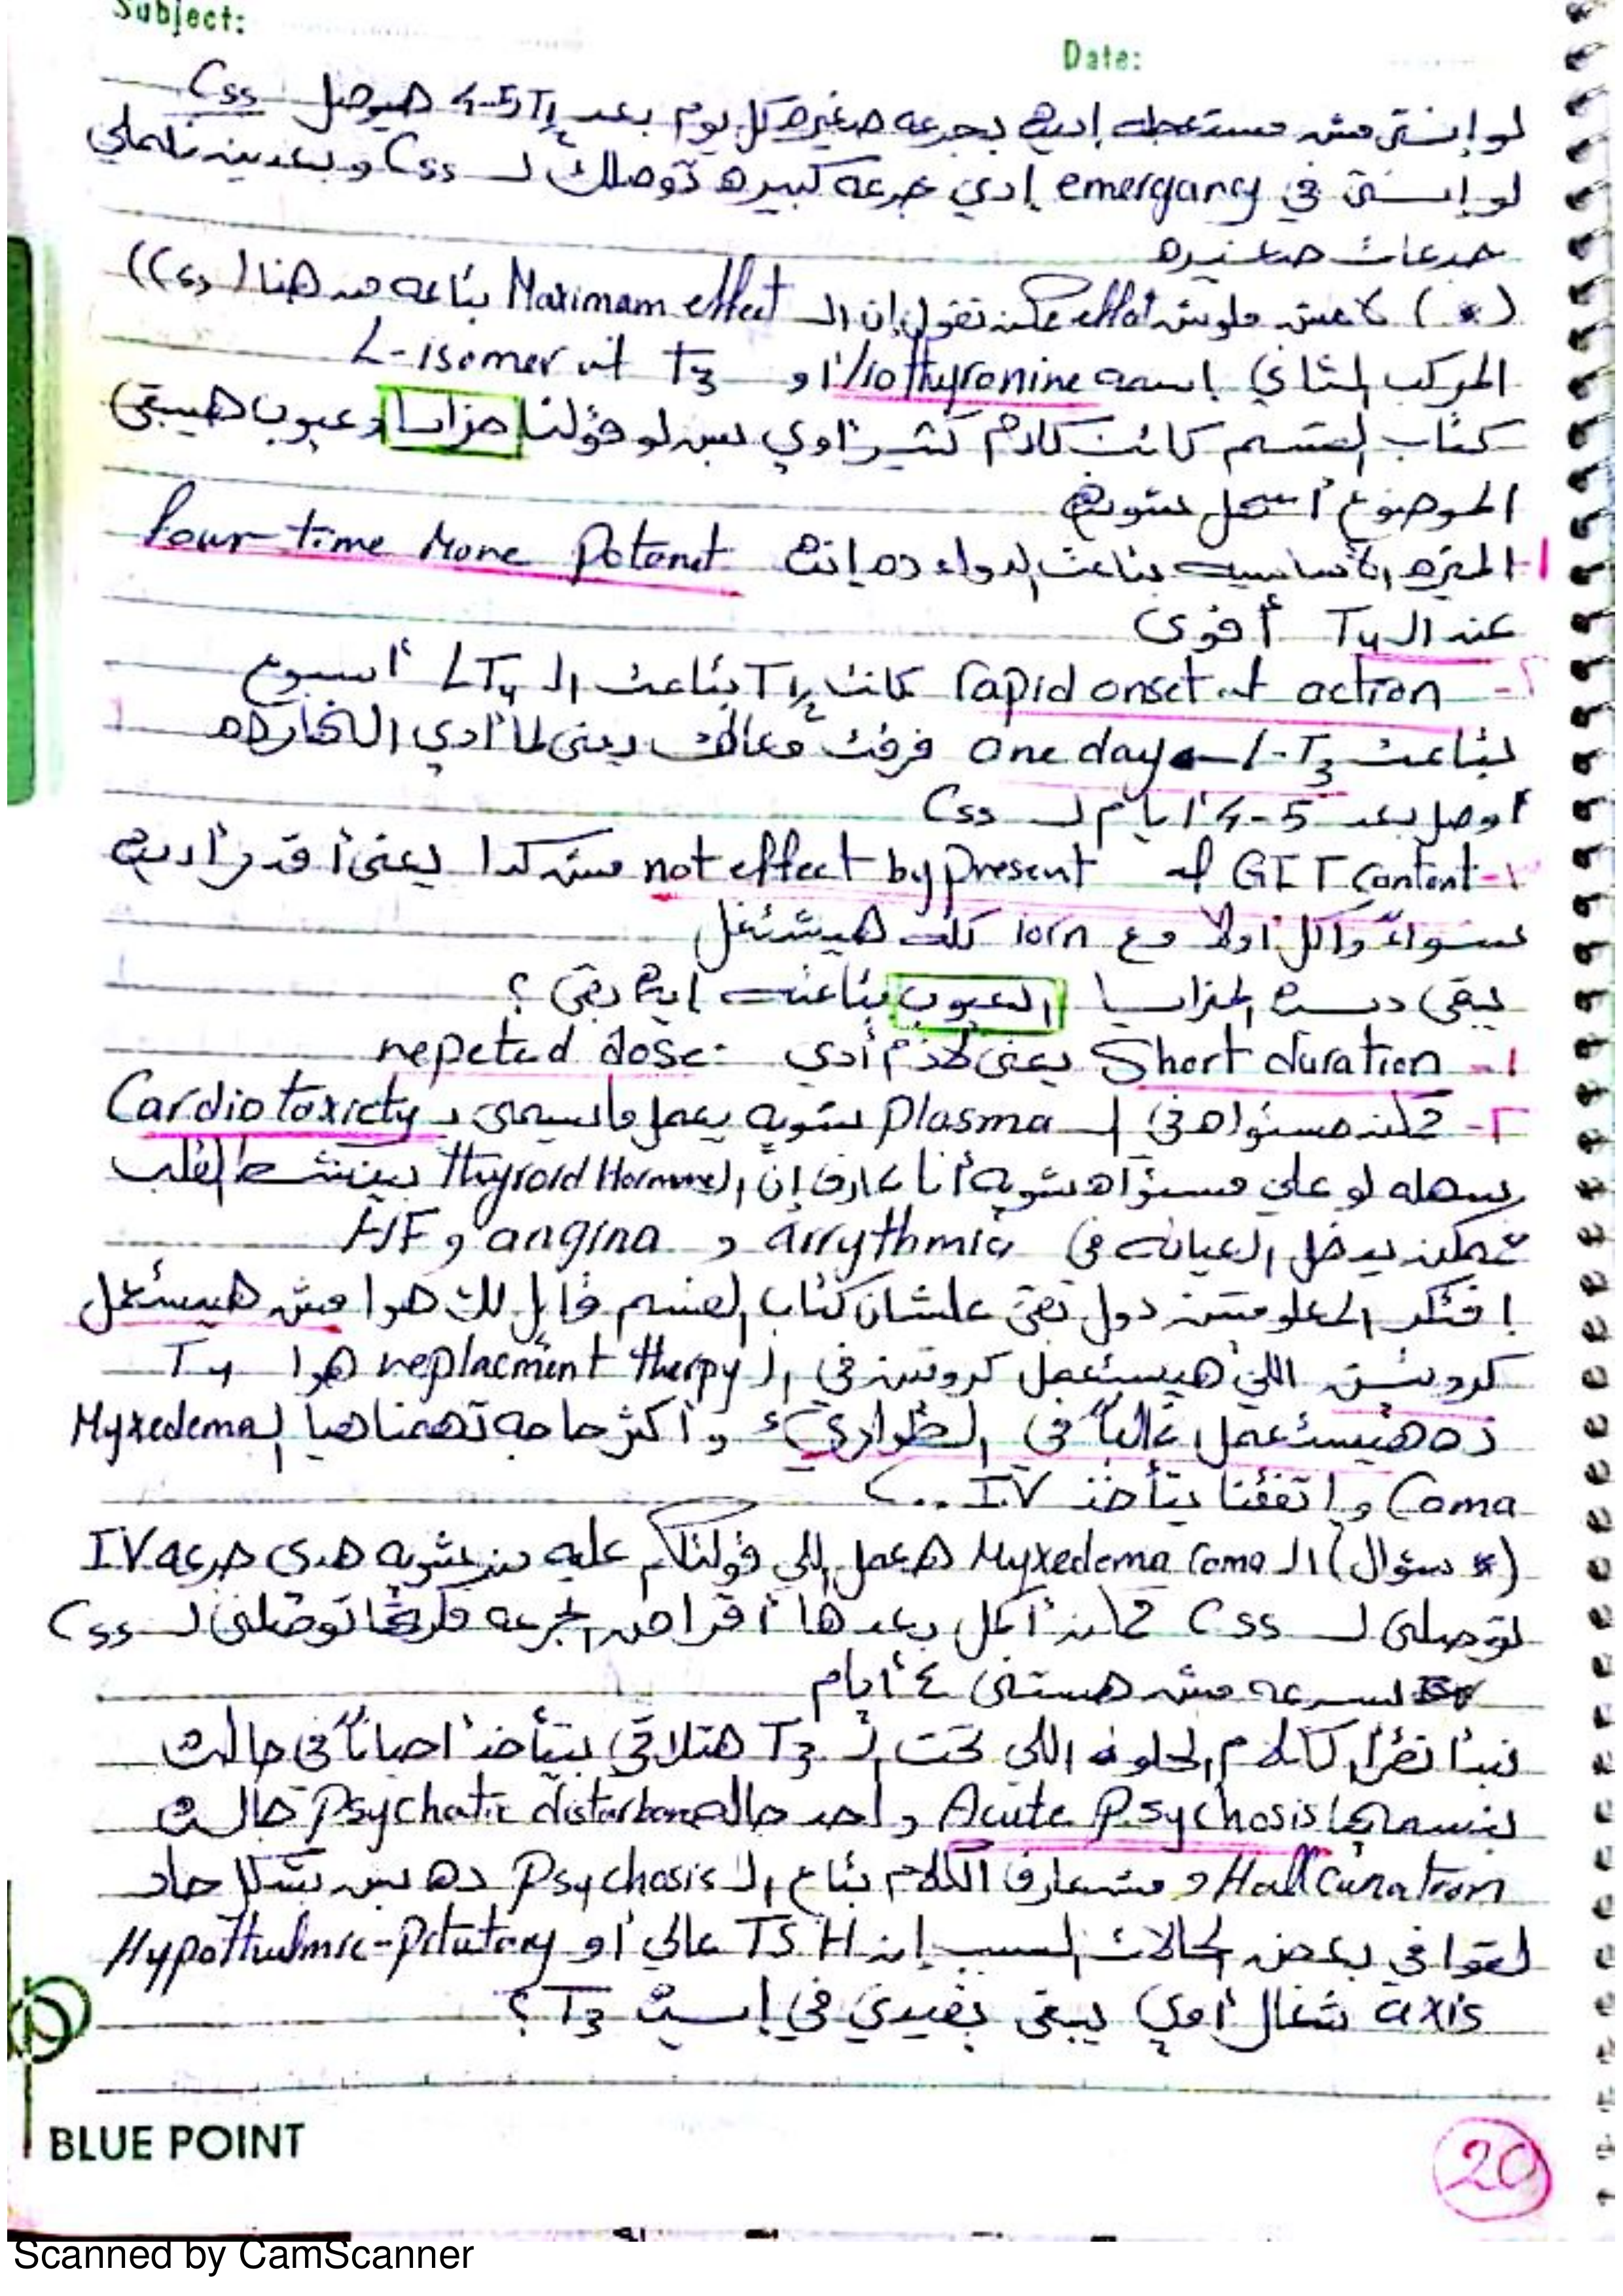 Subject:
Date:
لو إنتي مش مستعجله إديه بجرعه صغيره كل يوم بعد 4-5 T½ هيوصل Css
لو إنتي في emergancy إدي جرعه كبيره توصلك لـ Css وبعدين تكملي
جرعات صغيره
(*) effect نقول إن الـ Maximam effect بتاعه من هنا (Css)
المركب التاني إسمه liothyronine او T3 الـ L-isomer
كتاب القسم كاتب كلام كتير اوي بس لو قولنا مزايا وعيوب هيبقى
الموضوع أسهل شويه
١- الميزه الأساسيه بتاعت الدواء ده إنه four time More Potent
عند الـ T4 أقوى
٢- rapid onset of action كانت T½ بتاعت الـ LT4 أسبوع
بتاعت L-T3 one day فرقت معاك يعني لما أدي
اوصل بعد 4-5 أيام لـ Css
not effect by present of GIT content مش كدا يعني أقدر أديه
سواء واكل اولا مع iorn كله هيشتغل
يبقى ديه المزايا العيوب بتاعته إيه بقى ؟
١- Short duration يعني لازم أدي repeted dose
٢- ممكن مستواه في الـ Plasma شويه يعمل ما يسمى بـ Cardiotoxicty
بسهله لو علي مستواه شويه أنا عارف إن الـ thyroid Hormone بينشط القلب
ممكن يدخل العيانه في arrythmia و angina و HF
إفتكر المعلومتين دول بقى علشان كتاب القسم قايل لك هوا مش هيستعمل
كروتين اللي هيستعمل كروتين في الـ replacment therpy هوا T4
ده هيستعمل غالباً في الطواريء و أكتر حاجه تهمنا هيا الـ Myxedema
Coma وإتفقنا بتأخذ IV ...
(* سؤال) الـ Myxedema coma هعمل اللي قولتلكم عليه من شويه هدي جرعه IV
توصلني لـ Css ممكن أكمل بعدها أقراص الجرعه توصلني لـ Css
بسرعه مش هستنى ٤ أيام
نبدأ نقرأ الكلام الحلو اللي تحت الـ T3 هتلاقي بيتأخذ احياناً في حالات
بنسميها Acute Psychosis واحد حاله Psychatic distarbance حالات
Hallcunation و مش عارف الكلام بتاع الـ Psychosis ده بس بشكل حاد
لقوا في بعض الحالات السبب إن TSH عالي أو Hypothulmic-Pitutary
axis شغال أوي يبقى يفيدني في إيه T3 ؟
BLUE POINT
20
Scanned by CamScanner